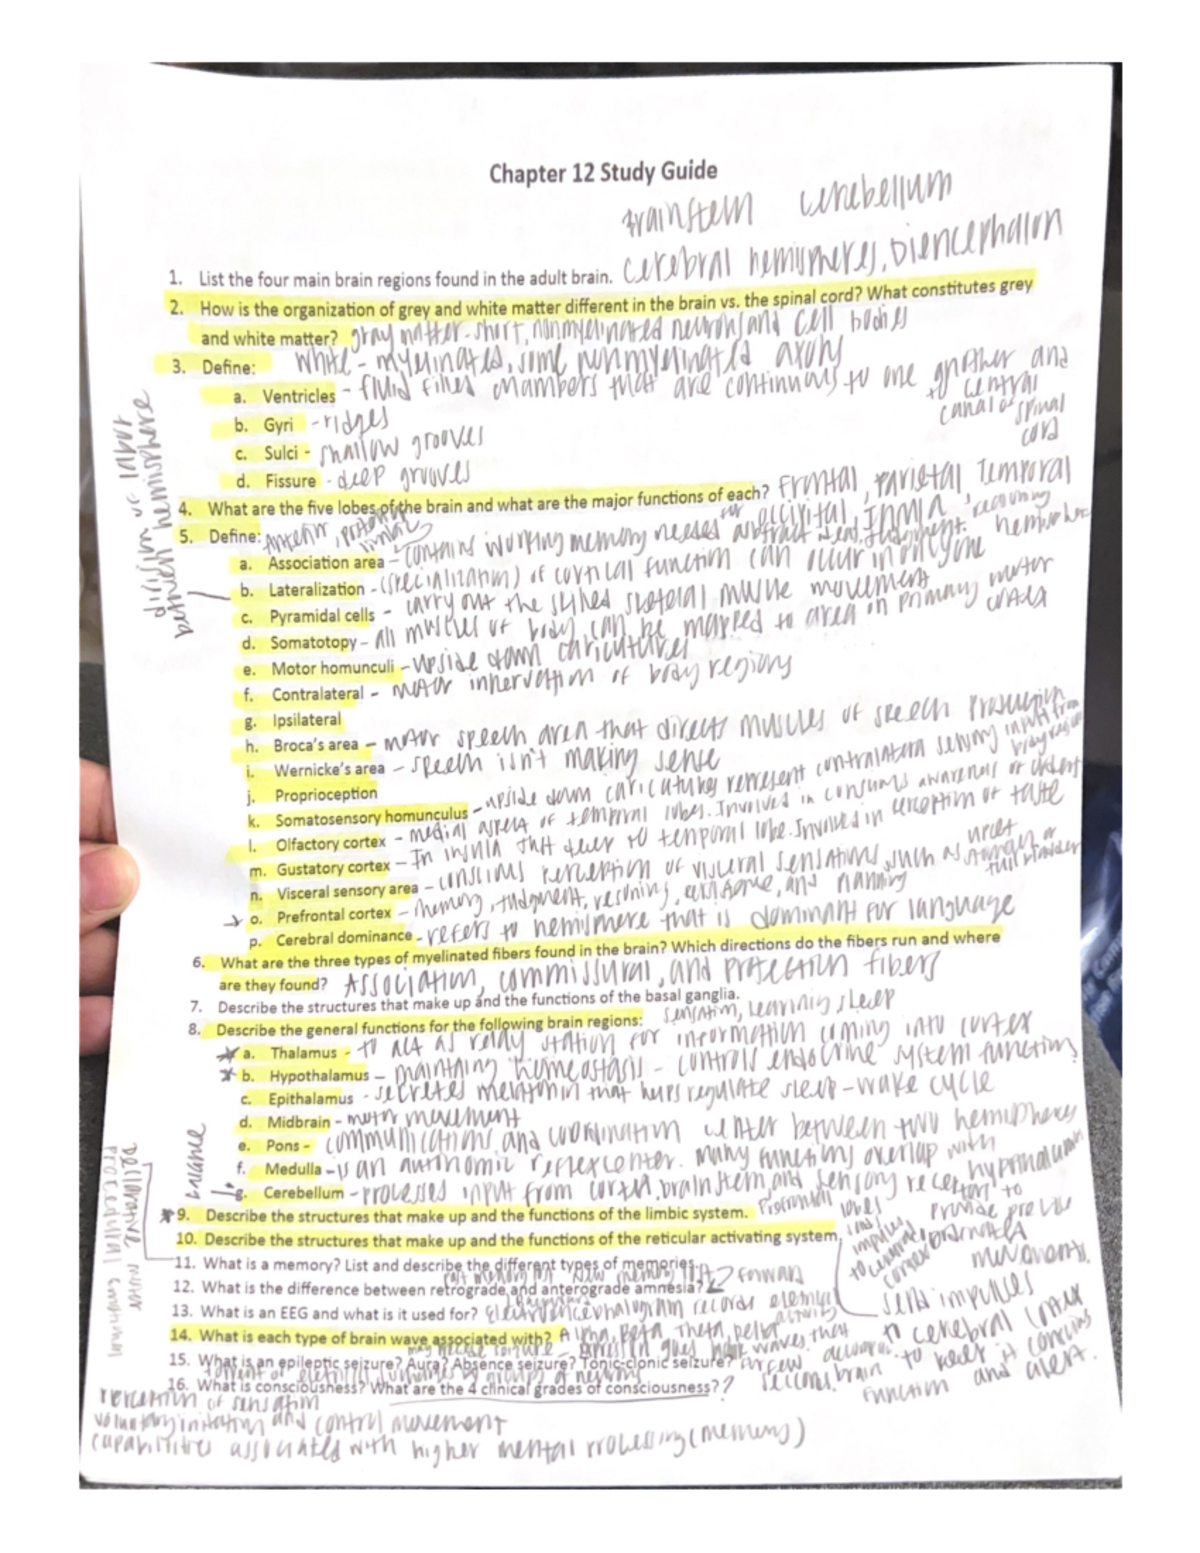 Chapter 12 Study Guide
brainstem cerebellum
1. List the four main brain regions found in the adult brain. cerebral hemispheres, Diencephalon
2. How is the organization of grey and white matter different in the brain vs. the spinal cord? What constitutes grey
and white matter? gray matter - short, nonmyelinated neurons and cell bodies
White - myelinated, some nonmyelinated axons
3. Define:
a. Ventricles - fluid filled chambers that are continuous to one another and
central
canal of spinal
cord
b. Gyri - ridges
c. Sulci - shallow grooves
d. Fissure - deep grooves
division of labor
between hemisphere
4. What are the five lobes of the brain and what are the major functions of each? Frontal, parietal, Temporal
occipital, Insula
5. Define: Anterior, posterior, limbic
a. Association area - contains working memory needed for abstract judgment.
b. Lateralization - (specialization) of cortical function can occur in only one hemisphere
c. Pyramidal cells - carry out the skilled skeletal muscle movement
d. Somatotopy - all muscles of body can be mapped to area in primary motor
cortex
e. Motor homunculi - upside down caricatures
f. Contralateral - motor innervation of body regions
g. Ipsilateral
h. Broca's area - motor speech area that directs muscles of speech production
i. Wernicke's area - speech isn't making sense
j. Proprioception
k. Somatosensory homunculus - upside down caricatures represent contralateral sensory inputs from
body region
l. Olfactory cortex - medial aspect of temporal lobes. Involved in conscious awareness of odors
m. Gustatory cortex - In insula just deep to temporal lobe. Involved in perception of taste
n. Visceral sensory area - conscious perception of visceral sensations, such as upset
stomach or
full bladder
o. Prefrontal cortex - memory, judgment, and planning
p. Cerebral dominance - refers to hemisphere that is dominant for language
6. What are the three types of myelinated fibers found in the brain? Which directions do the fibers run and where
are they found? Association, commissural, and projection fibers
7. Describe the structures that make up and the functions of the basal ganglia.
8. Describe the general functions for the following brain regions: sensation, learning, sleep
a. Thalamus - to act as relay station for information coming into cortex
b. Hypothalamus - maintaining homeostasis - controls endocrine system function
c. Epithalamus - secretes melatonin that helps regulate sleep-wake cycle
d. Midbrain - motor movement
e. Pons - communications and coordination center between two hemispheres
f. Medulla - is an autonomic reflex center. many functions overlap with
hypothalamus
balance
g. Cerebellum - processes input from cortex, brainstem and sensory receptors to
provide precise
movements.
9. Describe the structures that make up and the functions of the limbic system.
10. Describe the structures that make up and the functions of the reticular activating system
sends impulses
to cerebral cortex
to keep it conscious
function and alert.
Declarative motor
procedural emotional
11. What is a memory? List and describe the different types of memories.
12. What is the difference between retrograde and anterograde amnesia? forward
13. What is an EEG and what is it used for? Electroencephalogram records electrical
activity
14. What is each type of brain wave associated with? Alpha, Beta, Theta, Delta
15. What is an epileptic seizure? Aura? Absence seizure? Tonic-clonic seizure?
torrent of electrical by groups of neurons
16. What is consciousness? What are the 4 clinical grades of consciousness??
perception of sensation
voluntary initiation and control movement
capabilities associated with higher mental processing (memory)